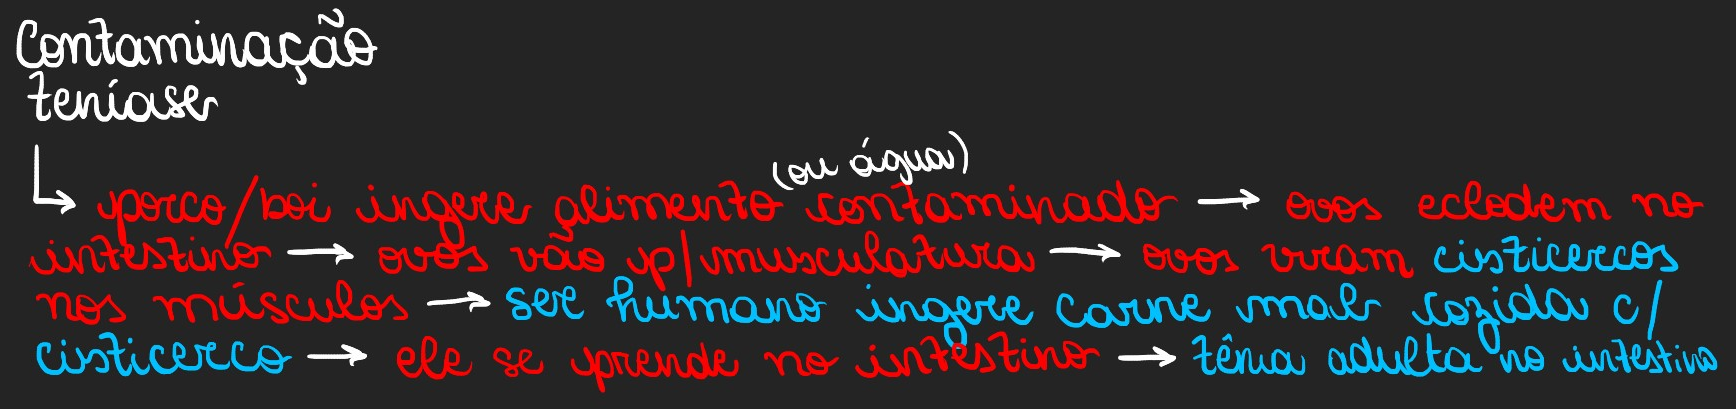 Contaminação
teníase
(ou água)
↳ porco/boi ingere alimento contaminado → ovos eclodem no
intestino → ovos vão p/ musculatura → ovos viram cisticercos
nos músculos → ser humano ingere carne mal cozida c/
cisticerco → ele se prende no intestino → tênia adulta no intestino